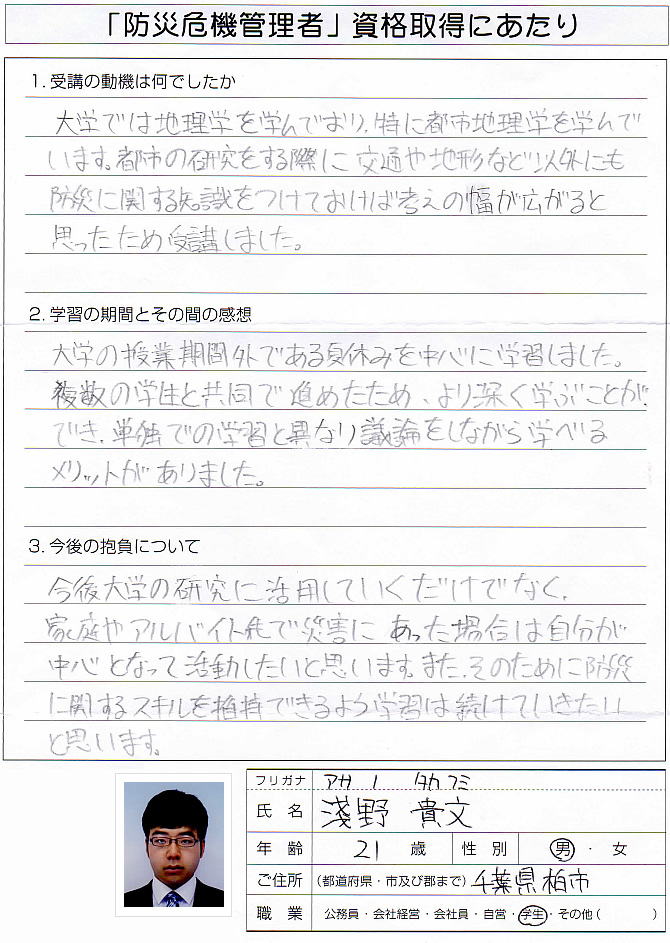 「防災危機管理者」資格取得にあたり
1. 受講の動機は何でしたか
大学では地理学を学んでおり、特に都市地理学を学んで
います。都市の研究をする際に交通や地形など以外にも
防災に関する知識をつけておけば考えの幅が広がると
思ったため受講しました。
2. 学習の期間とその間の感想
大学の授業期間外である夏休みを中心に学習しました。
複数の学生と共同で進めたため、より深く学ぶことが
でき、単独での学習と異なり議論をしながら学べる
メリットがありました。
3. 今後の抱負について
今後大学の研究に活用していくだけでなく、
家庭やアルバイト先で災害にあった場合は自分が
中心となって活動したいと思います。また、そのために防災
に関するスキルを維持できるよう学習は続けていきたい
と思います。
フリガナ アサノ タカフミ
氏名 淺野 貴文
年齢 21 歳 性別 男・女
ご住所 (都道府県・市及び郡まで) 千葉県柏市
職業 公務員・会社経営・会社員・自営・学生・その他( )